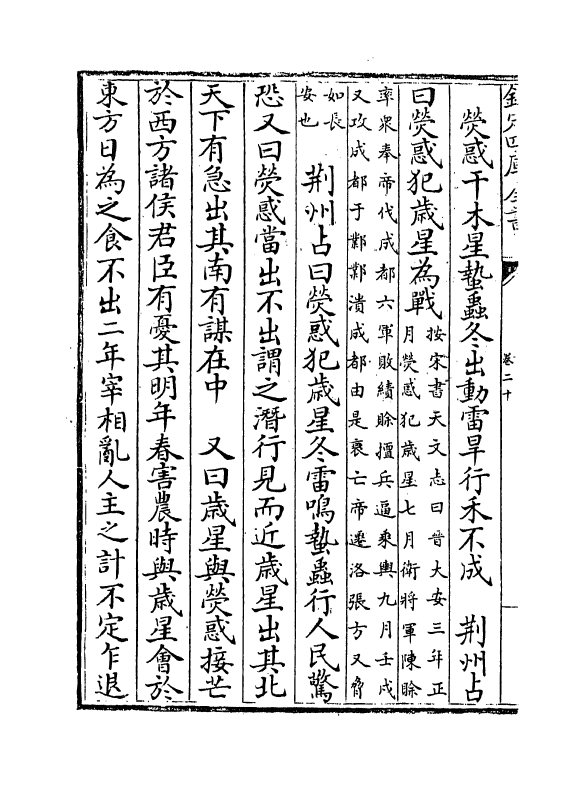 欽定四庫全書
卷二十
熒惑干木星蟄蟲冬出動雷旱行禾不成　荆州占
曰熒惑犯歲星為戰按宋書天文志曰晋大安三年正
月熒惑犯歲星七月衛將軍陳眕
率衆奉帝伐成都六軍敗績眕擅兵逼乘輿九月壬戌
又攻成都于鄴鄴潰成都由是衰亡帝遷洛張方又脅
如長
安也　荆州占曰熒惑犯歲星冬雷鳴蟄蟲行人民驚
恐又曰熒惑當出不出謂之潛行見而近歲星出其北
天下有急出其南有謀在中　又曰歲星與熒惑接芒
於西方諸侯君臣有憂其明年春害農時與歲星會於
東方日為之食不出二年宰相亂人主之計不定乍退